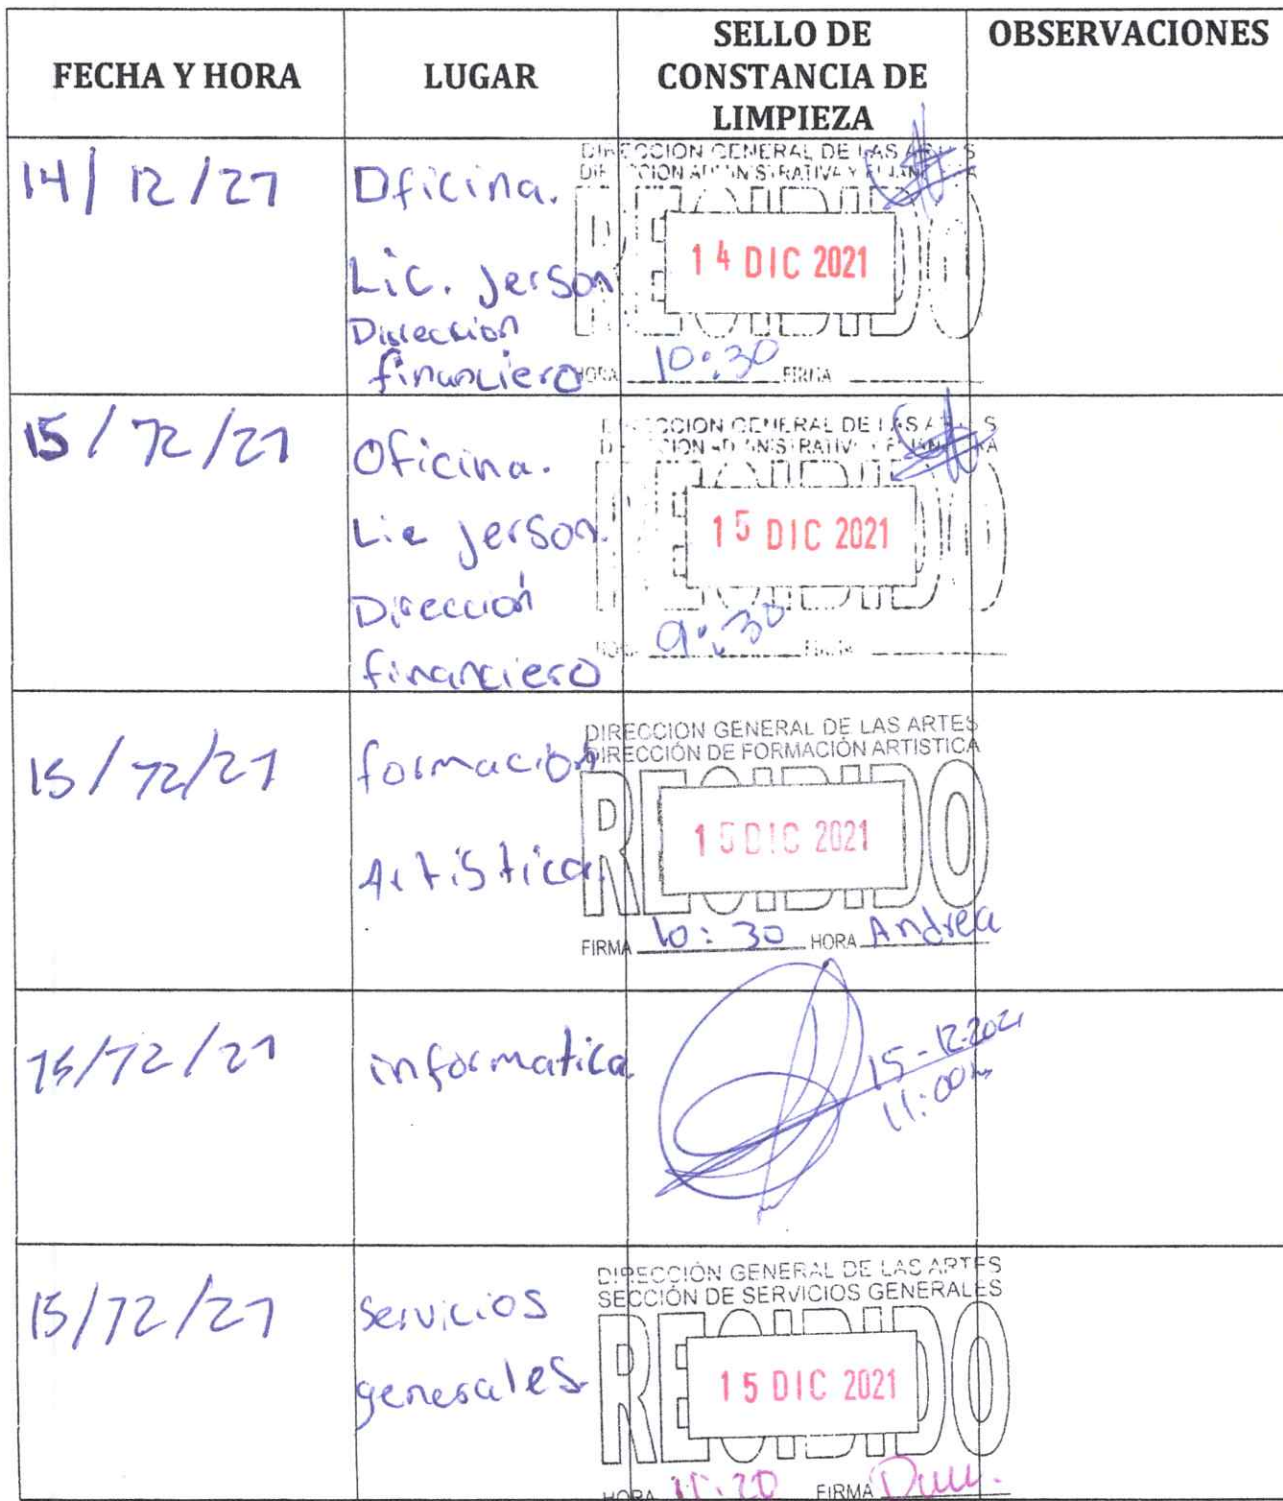 FECHA Y HORA
LUGAR
SELLO DE
CONSTANCIA DE
LIMPIEZA
OBSERVACIONES
14/12/21
Oficina.
Lic. Jerson
Direccion
financiero
DIRECCION GENERAL DE LAS ARTES
DIRECCION ADMINISTRATIVA Y FINANCIERA
RECIBIDO
14 DIC 2021
HORA 10:30 FIRMA
15/12/21
Oficina.
Lic Jerson.
Dirección
financiero
DIRECCION GENERAL DE LAS ARTES
DIRECCION ADMINISTRATIVA Y FINANCIERA
RECIBIDO
15 DIC 2021
HORA 9:30 FIRMA
15/12/21
formación
Artística.
DIRECCION GENERAL DE LAS ARTES
DIRECCIÓN DE FORMACIÓN ARTISTICA
RECIBIDO
15 DIC 2021
FIRMA 10:30 HORA Andrea
15/12/21
informatica
15-12-2021
11:00
15/12/21
Servicios
generales
DIRECCIÓN GENERAL DE LAS ARTES
SECCIÓN DE SERVICIOS GENERALES
RECIBIDO
15 DIC 2021
HORA 11:20 FIRMA